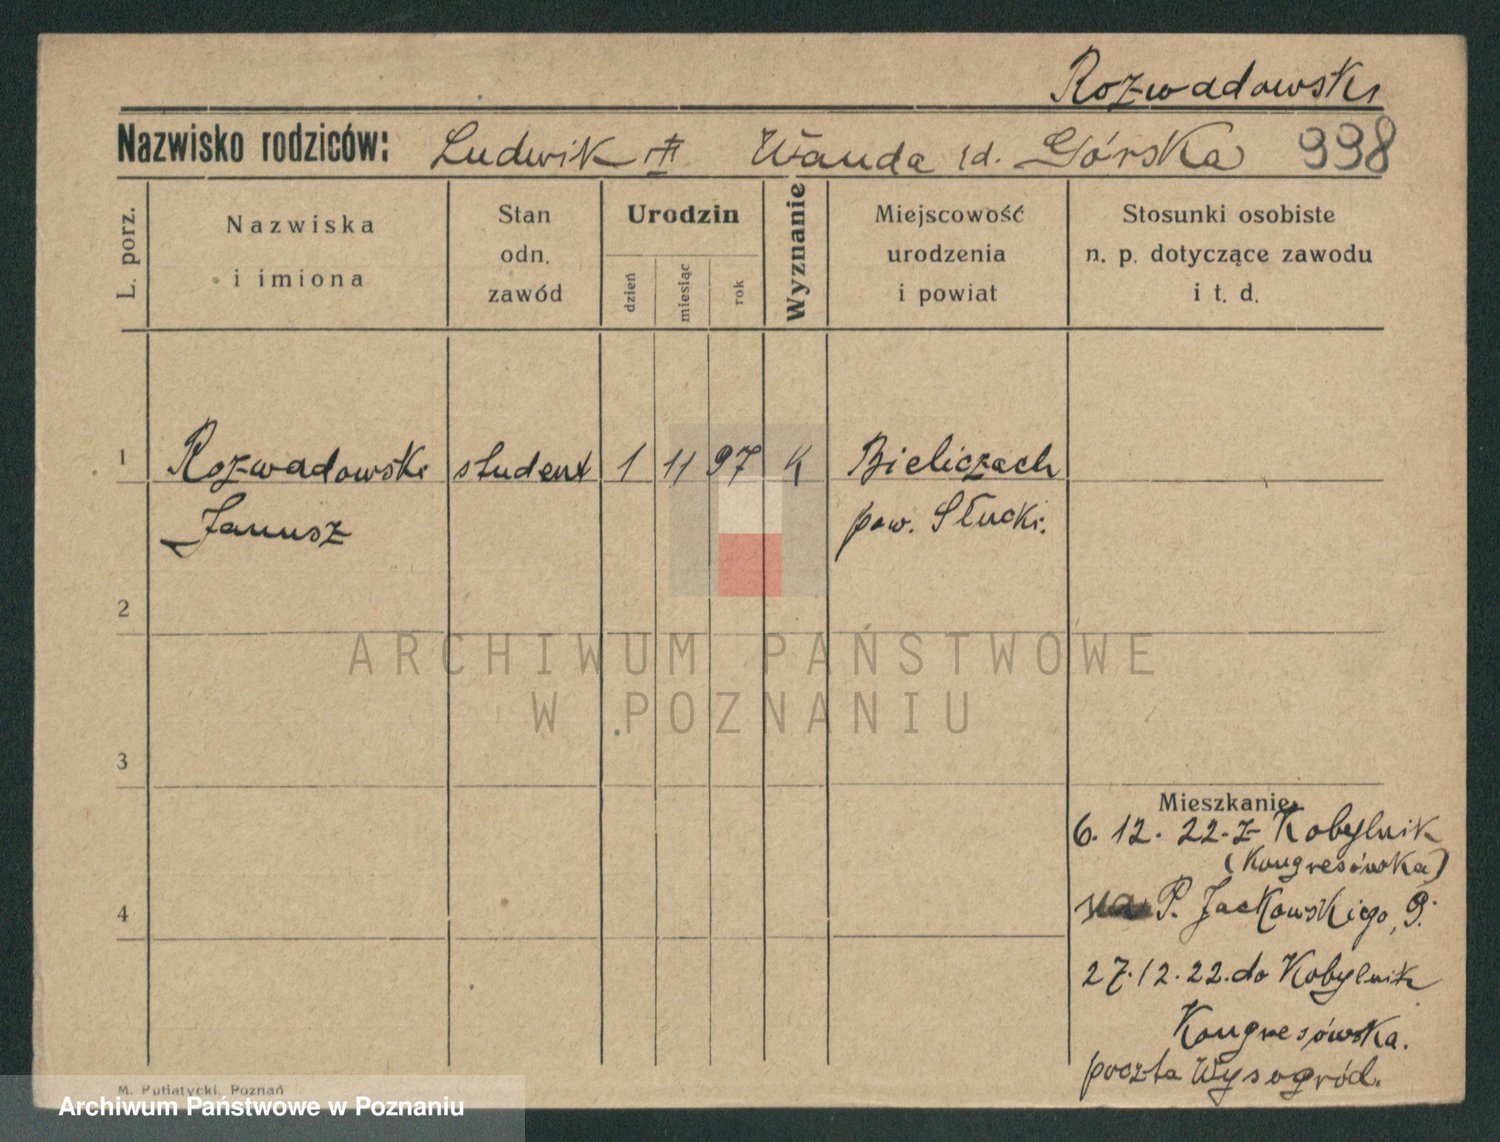 Rozwadowski
Nazwisko rodziców: Ludwik Wanda Górska 998
L. porz.
Nazwiska
i imiona
Stan
odn.
zawód
Urodzin
dzień
miesiąc
rok
Wyznanie
Miejscowość
urodzenia
i powiat
Stosunki osobiste
n. p. dotyczące zawodu
i t. d.
1 Rozwadowski student 1 11 97 K Bieliczach
Janusz pow. Słucki.
2
3
4
Mieszkanie
6. 12. 22. z Kobylnik
(Kongresówka)
P. Jackowskiego, 9.
27. 12. 22. do Kobylnik
Kongresówka.
poczta Wysogród.
M. Putiatycki, Poznań
ARCHIWUM PAŃSTWOWE
W POZNANIU
Archiwum Państwowe w Poznaniu